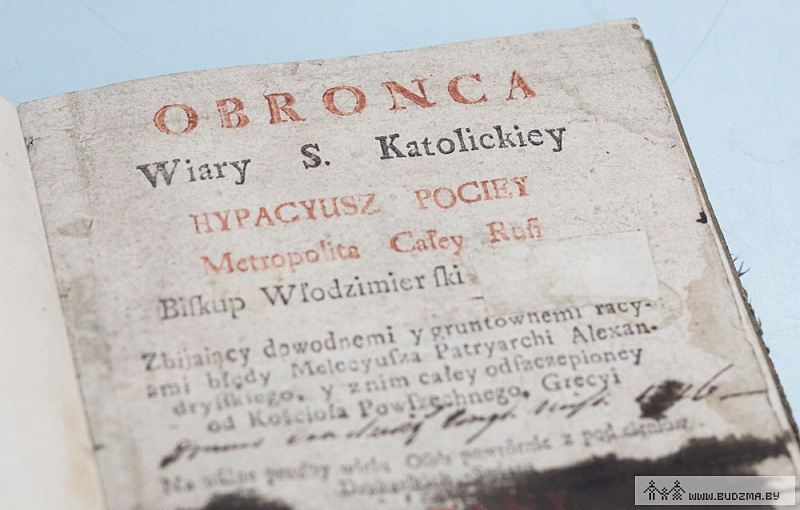 OBRONCA
Wiary S. Katolickiey
HYPACYUSZ POCIEY
Metropolita Całey Ruſi
Biſkup Włodzimierſki
Zbijaiący dowodnemi y gruntownemi racy-
ami błędy Melecyusza Patryarchi Alexan-
dryiſkiego, y znim całey odſzczepioney
od Kościoła Powſzechnego, Grecyi
Na
WWW.BUDZMA.BY